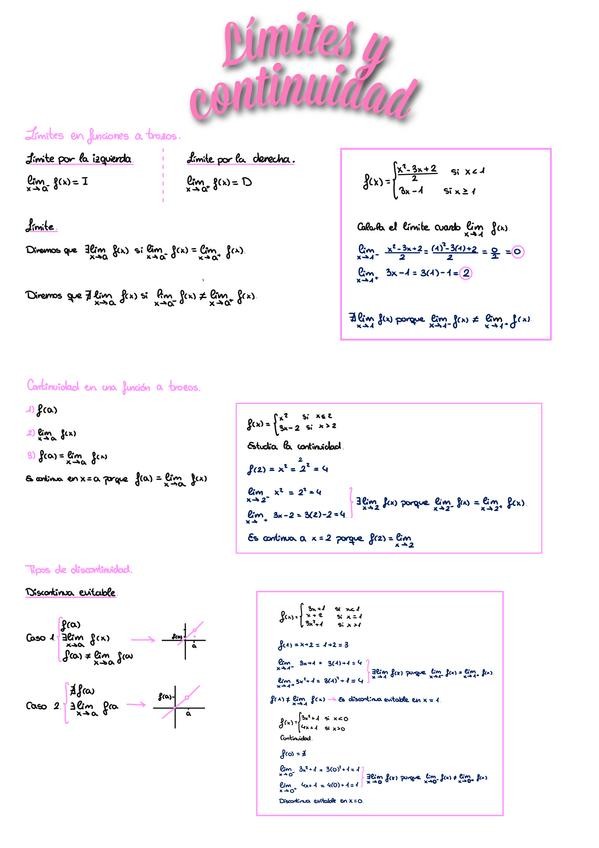 Límites y
continuidad
Límites en funciones a trozos.
Límite por la izquierda
lim x→a⁻ f(x) = I
Límite por la derecha.
lim x→a⁺ f(x) = D
Límite.
Diremos que ∃ lim x→a f(x) si lim x→a⁻ f(x) = lim x→a⁺ f(x)
Diremos que ∄ lim x→a f(x) si lim x→a⁻ f(x) ≠ lim x→a⁺ f(x)
f(x) = { x²-3x+2 / 2 si x<1
3x-1 si x≥1
Calcula el límite cuando lim x→1 f(x)
lim x→1⁻ x²-3x+2 / 2 = (1)²-3(1)+2 / 2 = 0/2 = 0
lim x→1⁺ 3x-1 = 3(1)-1 = 2
∄ lim x→1 f(x) porque lim x→1⁻ f(x) ≠ lim x→1⁺ f(x)
Continuidad en una función a trozos.
1) f(a)
2) lim x→a f(x)
3) f(a) = lim x→a f(x)
Es continua en x=a porque f(a) = lim x→a f(x)
f(x) = { x² si x≤2
3x-2 si x>2
Estudia la continuidad.
f(2) = x² = 2² = 4
lim x→2⁻ x² = 2² = 4
lim x→⁺ 3x-2 = 3(2)-2 = 4
∃ lim x→2 f(x) porque lim x→2⁻ f(x) = lim x→2⁺ f(x).
Es continua a x=2 porque f(2) = lim x→2
Tipos de discontinuidad.
Discontinua evitable
Caso 1 { f(a)
∃ lim x→a f(x)
f(a) ≠ lim x→a f(a)
→
f(a)
a
Caso 2 { ∄ f(a)
∃ lim x→a f(a
→
f(a)
a
f(x) = { 3x+1 si x<1
x+2 si x=1
3x²+1 si x>1
f(1) = x+2 = 1+2 = 3
lim x→1⁻ 3x+1 = 3(1)+1 = 4
lim x→1⁺ 3x²+1 = 3(1)²+1 = 4
∃ lim x→1 f(x) porque lim x→1⁻ f(x) = lim x→1⁺ f(x).
f(1) ≠ lim x→1 f(x) → Es discontinua evitable en x=1.
f(x) = { 3x²+1 si x<0
4x+1 si x>0
Continuidad
f(0) = ∄
lim x→0⁻ 3x²+1 = 3(0)²+1 = 1
lim x→0⁺ 4x+1 = 4(0)+1 = 1
∃ lim x→0 f(x) porque lim x→0⁻ f(x) ≠ lim x→0⁺ f(x)
Discontinua evitable en x=0